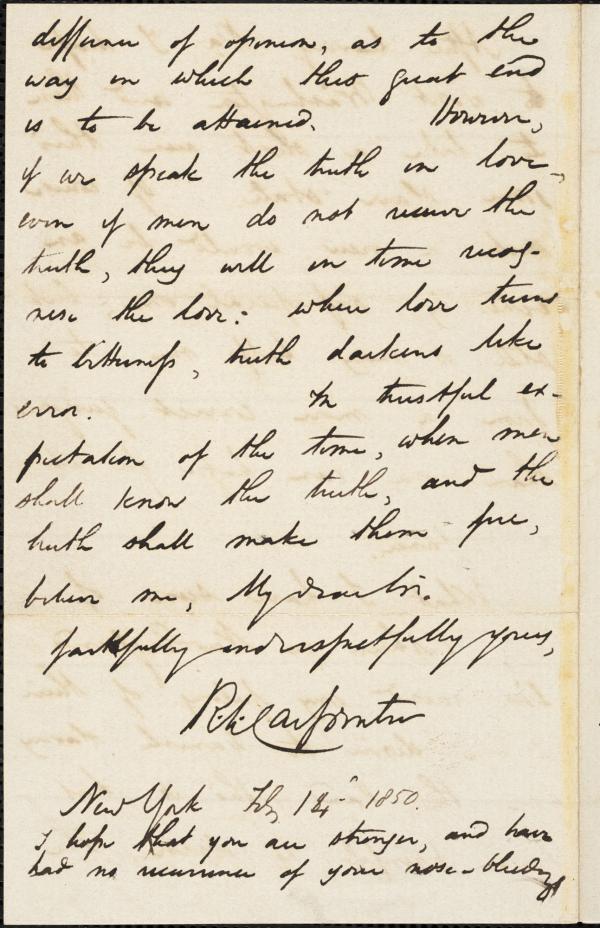 difference of opinion, as to the
way in which this great end
is to be attained. However,
if we speak the truth in love,
even if men do not receive the
truth, they will in time recog-
nise the love: where love turns
to bitterness, truth darkens like
error. In trustful ex-
pectation of the time, when men
shall know the truth, and the
truth shall make them free,
believe me, My dear Sir.
faithfully and respectfully yours,
Carpenter
New York Feby 1850.
I hope that you are stronger, and have
had no recurrence of your nose-bleedings